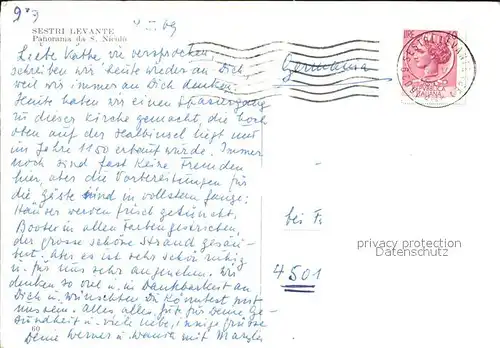 9⁰7
4 III 69
SESTRI LEVANTE
Panorama da S. Nicolò
Liebe Käthe wie versprochen,
schreiben wir heute wieder an Dich
weil wir immer an Dich denken.
Heute haben wir einen Spaziergang
zu dieser Kirche gemacht, die hoch
oben auf der Halbinsel liegt und
im Jahre 1150 erbaut wurde. Immer
noch sind fast keine Fremden
hier, aber die Vorbereitungen für
die Gäste sind in vollstem Gange:
Häuser werden frisch getüncht,
Booter in allen Farben gestrichen,
der grosse schöne Strand gesäu-
bert. Aber es ist sehr schön ruhig
u. für uns sehr angenehm. Wir
denken so oft u. in Dankbarkeit an
Dich u. wünschten Du könntest mit
uns sein. Alles alles gute für Deine Ge-
sundheit u. viele liebe, innige Grüsse
60
Deine Werner u. Wanda mit
Germania
bei Fr
4501
privacy protection
watermark